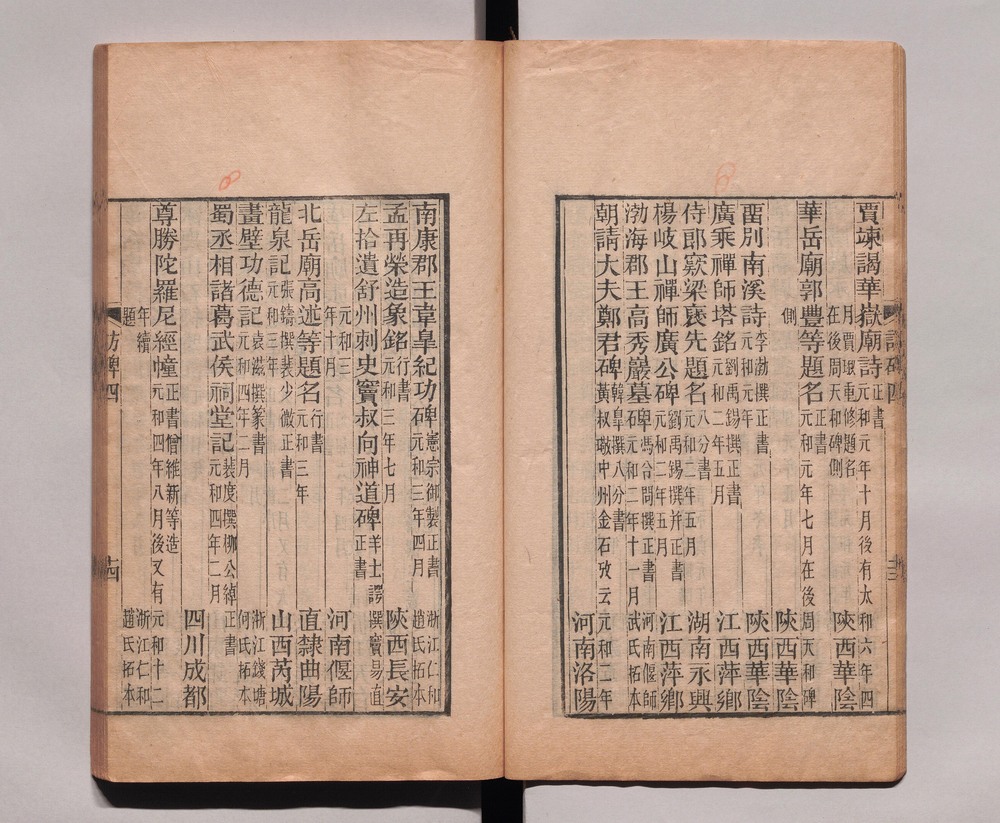 賈竦謁華嶽廟詩 正書 元和元年十月後有太和六年四
月賈琡重修題名在後周天和碑側 陝西華陰
華岳廟郭豐等題名 正書 元和元年七月在後周天和碑
側 陝西華陰
畱別南溪詩 李渤撰正書 元和元年 陝西華陰
廣乘禪師塔銘 劉禹錫撰正書 元和二年五月 江西萍鄉
侍郎窽梁褒先題名 八分書 元和二年五月 湖南永興
楊岐山禪師廣公碑 劉禹錫撰并正書 元和二年五月 江西萍鄉
渤海郡王高秀巖墓碑 正書 元和二年十一月 河南偃師武氏拓本
朝請大夫鄭君碑 韓臯撰八分書 黃叔璥中州金石攷云元和二年
河南洛陽
南康郡王韋皐紀功碑 憲宗御製正書 元和三年四月 浙江仁和趙氏拓本
孟再榮造象銘 行書 元和三年七月 陝西長安
左拾遺舒州刺史竇叔向神道碑 羊士諤撰竇易直正書
元和三年十月 河南偃師
北岳廟高述等題名 行書 元和三年 直隸曲陽
龍泉記 張鑄撰裴少微正書 元和三年 山西芮城
畫壁功德記 袁滋撰篆書 元和四年二月 浙江錢塘何氏拓本
蜀丞相諸葛武侯祠堂記 裴度撰柳公綽正書 元和四年二月
四川成都
尊勝陀羅尼經幢 正書曾維新等造 元和四年八月後又有元和十二
年續題 浙江仁和趙氏拓本
訪碑四
十四